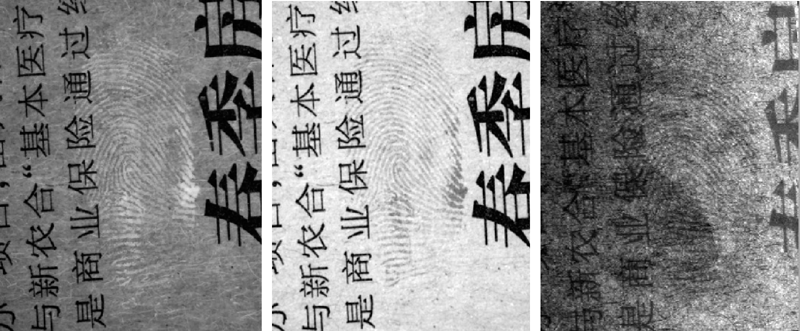 项目,
与新农合“基本医疗
是商业保险通过
春季房
项目,
与新农合“基本医疗
是商业保险通过
春季房
与新农合“基本医疗
是商业保险通过